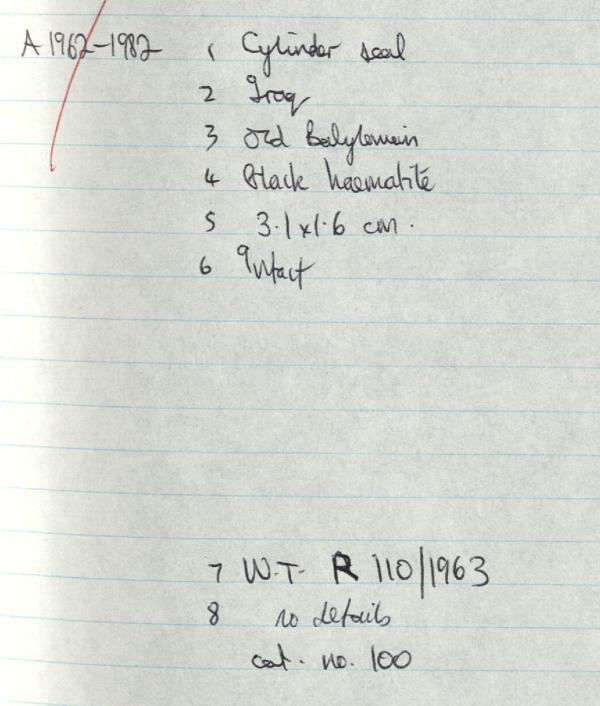 A 1962-1982 1 Cylinder seal
2 Iraq
3 Old Babylonian
4 Black haematite
5 3.1 x 1.6 cm.
6 Intact
7 W.T. R 110/1963
8 no details
cat. no. 100